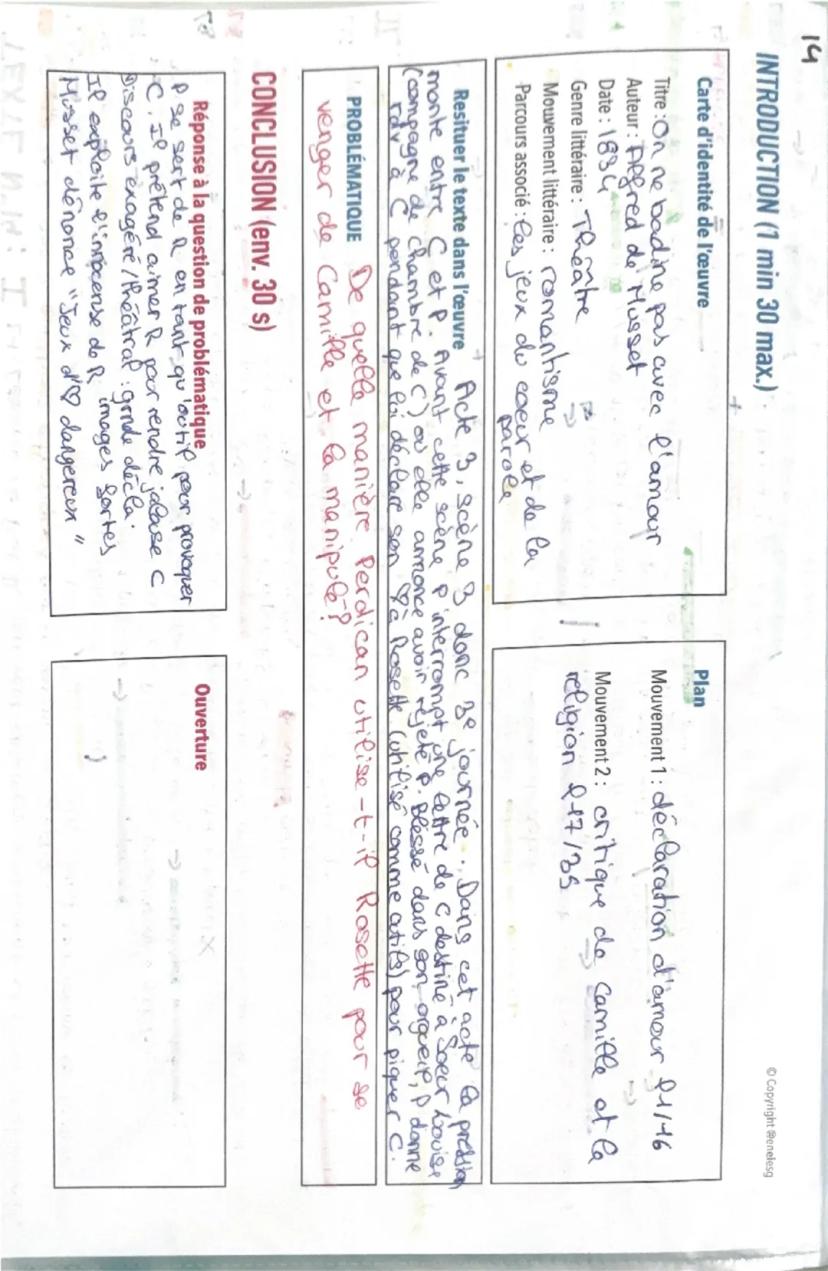 14
INTRODUCTION (1 min 30 max.)
© Copyright @enelesg
Carte d'identité de l'œuvre
Titre : On ne badine pas avec l'amour
Auteur : Alfred de Musset
Date : 1834
Genre littéraire : Théâtre
Mouvement littéraire : romantisme
Parcours associé : Les jeux du cœur et de la
parole
Plan
Mouvement 1 : déclaration d'amour l1/16
Mouvement 2 : critique de Camille et la
religion l17/35
Resituer le texte dans l'œuvre Acte 3, scène 3 donc 3e journée. Dans cet acte la pression
monte entre C et P. Avant cette scène P interrompt une lettre de C destiné à Soeur Louise
(compagne de chambre de C) où elle annonce avoir rejeté P. Blessé dans son orgueil, P donne
rdv à C pendant que lui déclare son ♡ à Rosette (utilisé comme outils) pour piquer C.
PROBLÉMATIQUE De quelle manière Perdican utilise-t-il Rosette pour se
venger de Camille et la manipule?
CONCLUSION (env. 30 s)
Réponse à la question de problématique
P se sert de R en tant qu'outil pour provoquer
C. Il prétend aimer R pour rendre jalouse C
Discours exagéré/théâtral : grande décla.
Il exploite l'innocence de R images fortes
Musset dénonce "Jeux d'♡ dangereux"
Ouverture